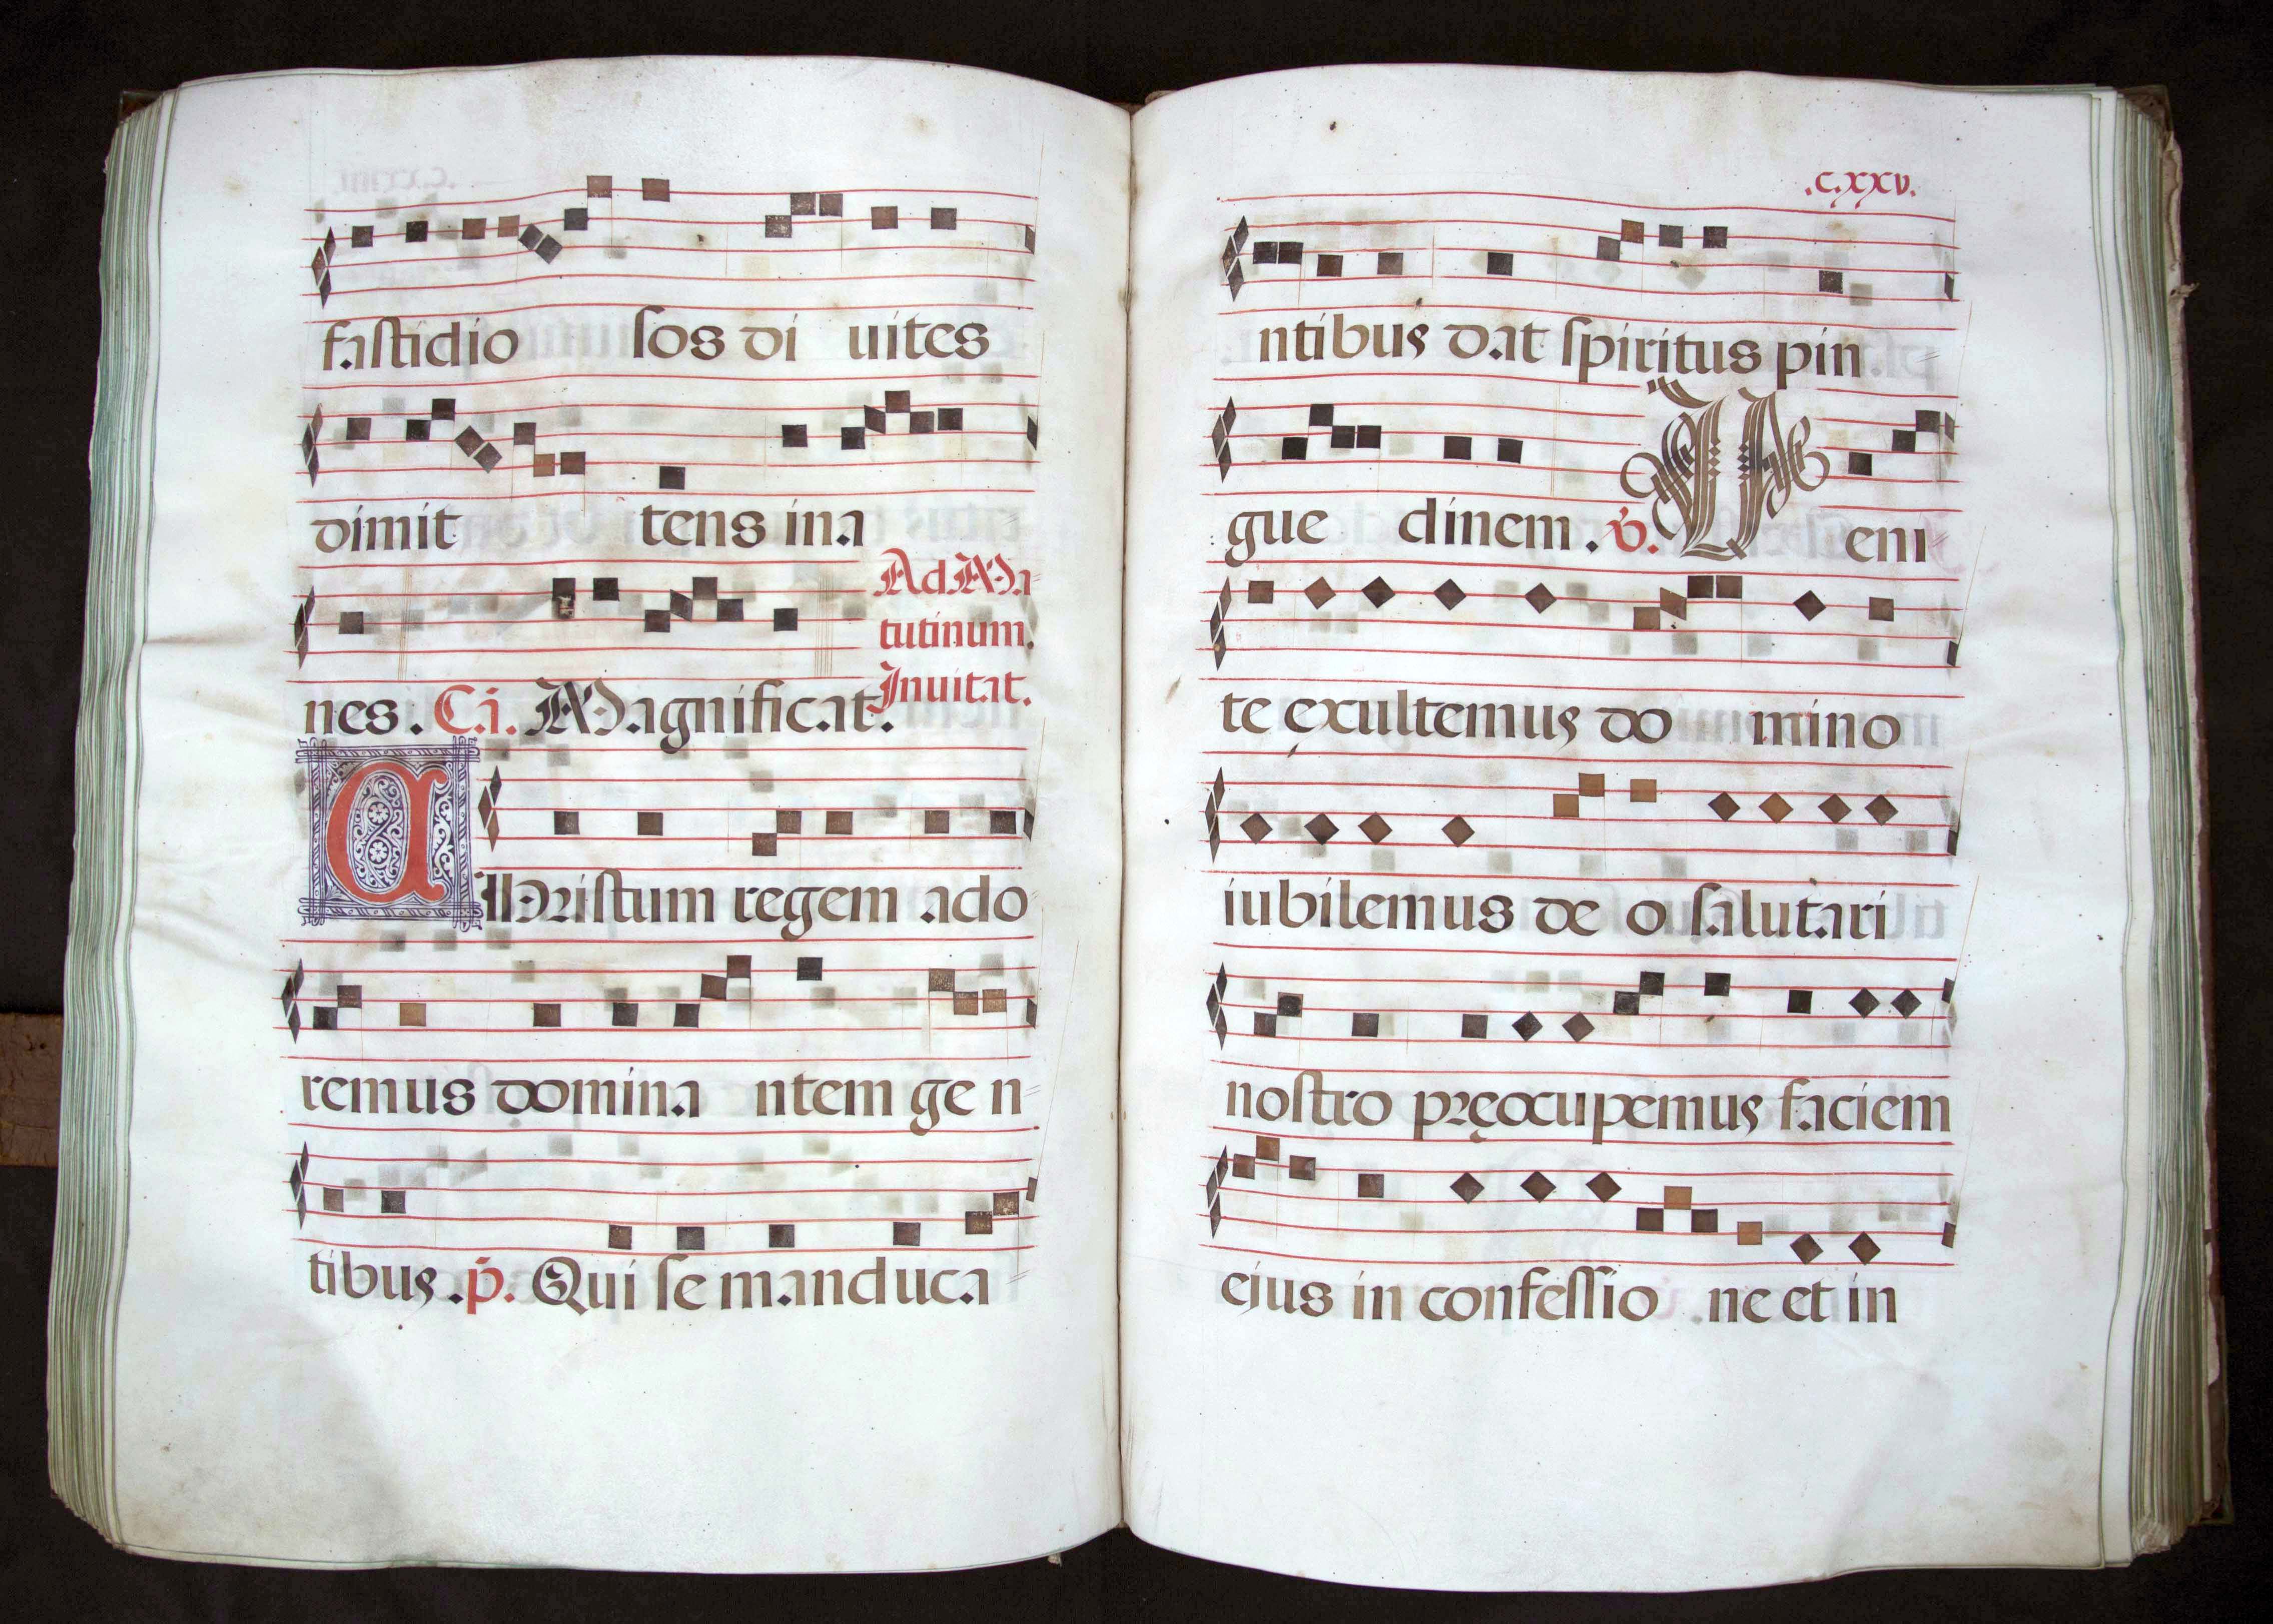 fastidio sos di uites
dimit tens ina
nes. Cã. Magnificat.
Ad Ma
tutinum.
Inuitat.
CHristum regem ado
remus domina ntem ge n
tibus. p̃. Qui se manduca
.c.xxv.
ntibus dat spiritus pin
gue dinem. v̄. Ueni
te exultemus do mino
iubilemus de o salutari
nostro pręocupemus faciem
ejus in confessio ne et in